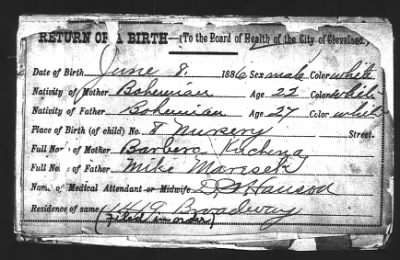 RETURN OF A BIRTH—(To the Board of Health of the City of Cleveland.)
Date of Birth June 8. 1886 Sex male Color white
Nativity of Mother Bohemian Age 22 Color white
Nativity of Father Bohemian Age 27 Color white
Place of Birth (of child) No. 8 Nursery Street.
Full Name of Mother Barbera Kuchena
Full Name of Father Mike
Name of Medical Attendant or Midwife
Residence of same 1419 Broadway
(filed in order)